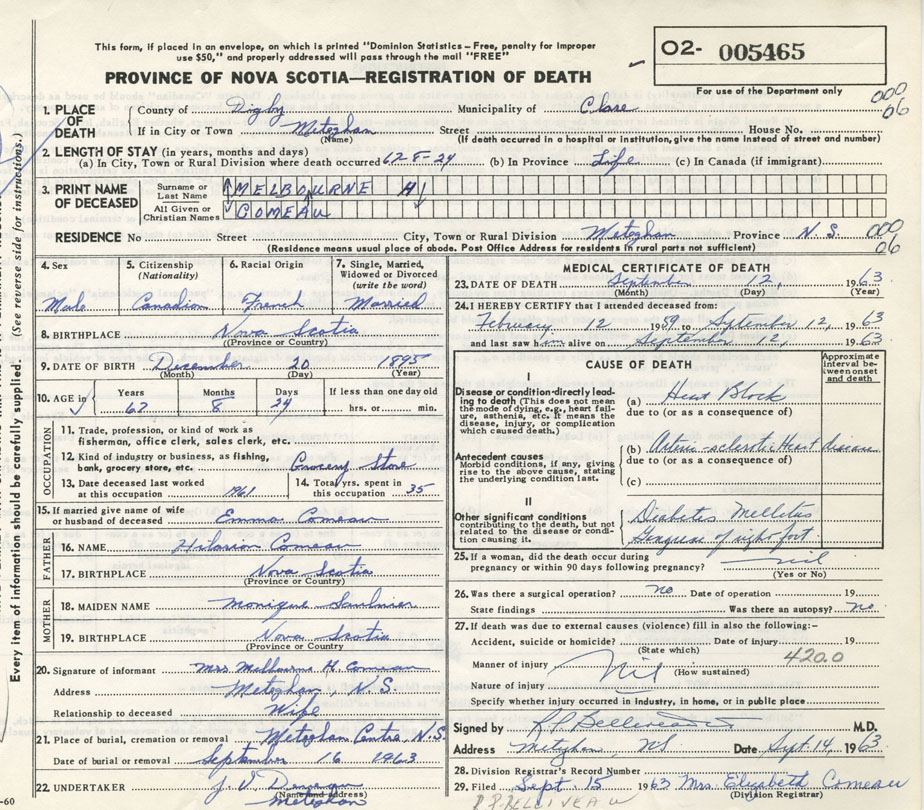 This form, if placed in an envelope, on which is printed "Dominion Statistics – Free, penalty for improper
use $50," and properly addressed will pass through the mail "FREE"
PROVINCE OF NOVA SCOTIA—REGISTRATION OF DEATH
O2- 005465
For use of the Department only
000
06
1. PLACE OF DEATH
County of Digby Municipality of Clare
If in City or Town Meteghan Street House No.
(Name) (If death occurred in a hospital or institution, give the name instead of street and number)
2. LENGTH OF STAY (in years, months and days)
(a) In City, Town or Rural Division where death occurred 67-8-24 (b) In Province Life (c) In Canada (if immigrant)
3. PRINT NAME OF DECEASED
Surname or Last Name MELBOURNE H
All Given or Christian Names COMEAU
RESIDENCE No Street City, Town or Rural Division Meteghan Province N. S.
(Residence means usual place of abode. Post Office Address for residents in rural parts not sufficient)
000
06
4. Sex
Male
5. Citizenship
(Nationality)
Canadian
6. Racial Origin
French
7. Single, Married, Widowed or Divorced
(write the word)
Married
8. BIRTHPLACE Nova Scotia
(Province or Country)
9. DATE OF BIRTH December 20 1895
(Month) (Day) (Year)
10. AGE
Years Months Days If less than one day old
67 8 24 hrs. or min.
OCCUPATION
11. Trade, profession, or kind of work as
fisherman, office clerk, sales clerk, etc.
12. Kind of industry or business, as fishing,
bank, grocery store, etc. Grocery Store
13. Date deceased last worked at this occupation 1961
14. Total yrs. spent in this occupation 35
15. If married give name of wife
or husband of deceased Emma Comeau
FATHER
16. NAME Hilarion Comeau
17. BIRTHPLACE Nova Scotia
(Province or Country)
MOTHER
18. MAIDEN NAME Monique Saulnier
19. BIRTHPLACE Nova Scotia
(Province or Country)
20. Signature of informant Mrs. Melbourne H. Comeau
Address Meteghan, N. S.
Relationship to deceased Wife
21. Place of burial, cremation or removal Meteghan Centre N.S.
Date of burial or removal September 16 1963
22. UNDERTAKER J. V.
(Name and address)
Meteghan
MEDICAL CERTIFICATE OF DEATH
23. DATE OF DEATH September 12, 1963
(Month) (Day) (Year)
24. I HEREBY CERTIFY that I attended deceased from:
February 12 1959 to September 12, 1963
and last saw him alive on September 12, 1963
CAUSE OF DEATH
Approximate interval between onset and death
I
Disease or condition directly leading to death (This does not mean the mode of dying, e.g., heart failure, asthenia, etc. It means the disease, injury, or complication which caused death.)
(a) Heart Block
due to (or as a consequence of)
Antecedent causes
Morbid conditions, if any, giving rise to the above cause, stating the underlying condition last.
(b) Arterio sclerotic Heart disease
due to (or as a consequence of)
(c)
II
Other significant conditions
contributing to the death, but not related to the disease or condition causing it.
Diabetes Mellitus
Gangrene of right foot
25. If a woman, did the death occur during
pregnancy or within 90 days following pregnancy? nil
(Yes or No)
26. Was there a surgical operation? no Date of operation 19
State findings Was there an autopsy? no
27. If death was due to external causes (violence) fill in also the following:-
Accident, suicide or homicide? Date of injury 19
(State which)
420.0
Manner of injury Nil
(How sustained)
Nature of injury
Specify whether injury occurred in industry, in home, or in public place
Signed by R P Belliveau M.D.
Address Meteghan NS Date Sept. 14, 1963
28. Division Registrar's Record Number
29. Filed Sept. 15 1963 Mrs. Elizabeth Comeau
(Division Registrar)
R.P. BELLIVEAU
Every item of information should be carefully supplied. (See reverse side for instructions.)
-60